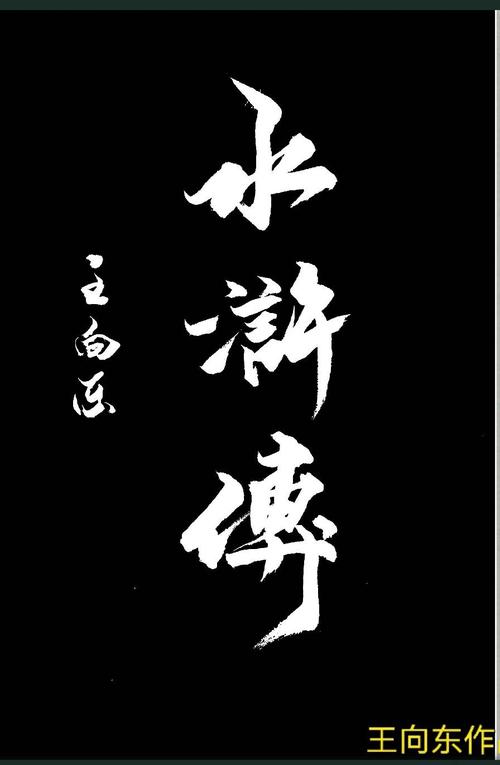 水滸傳
王向东
王向东作